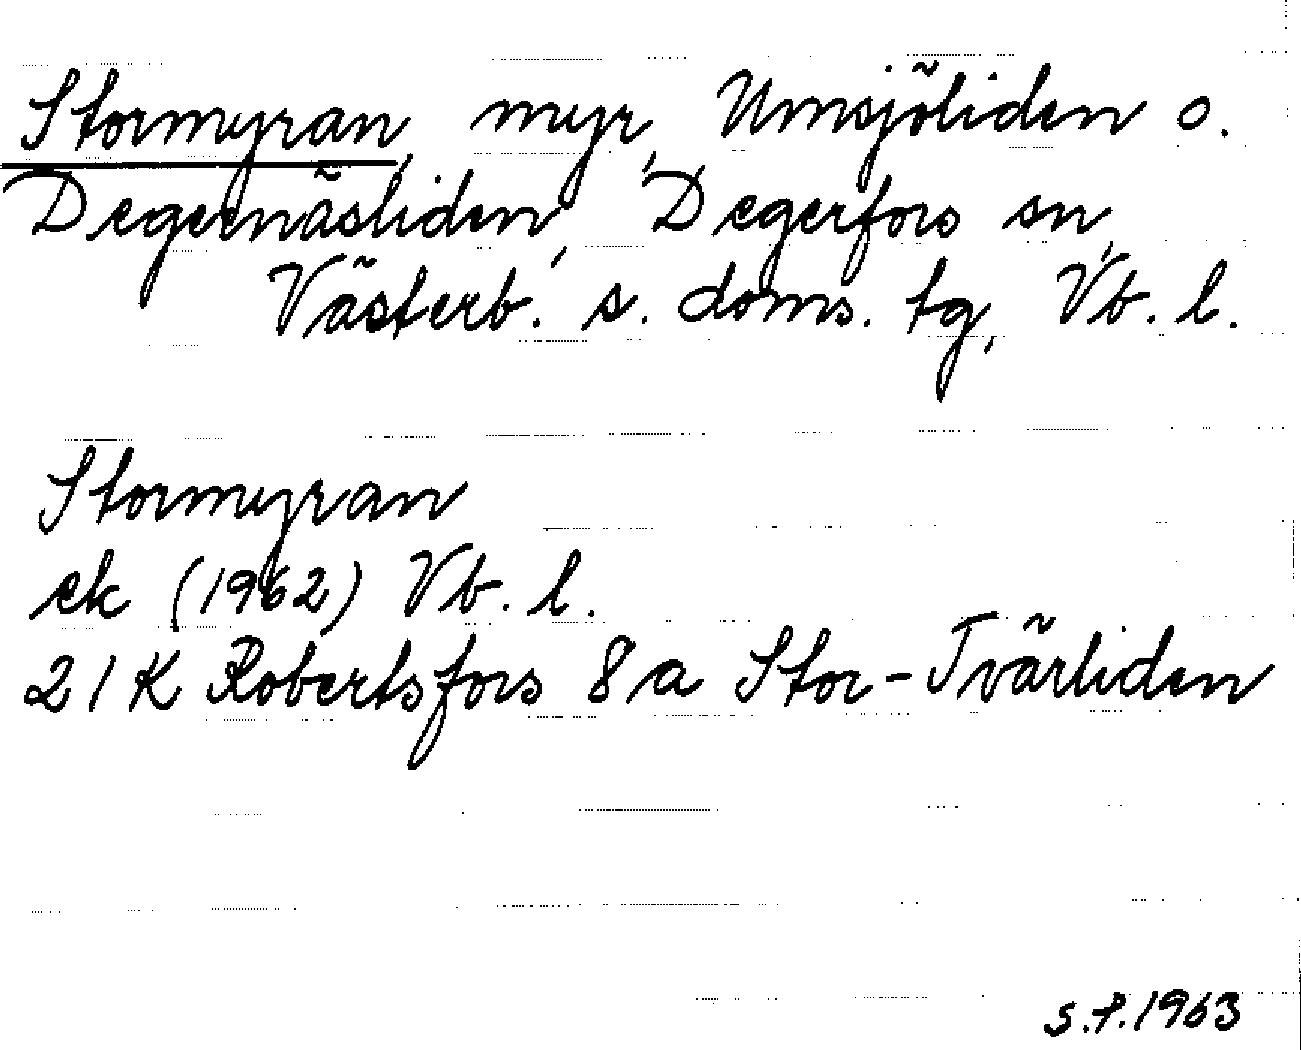 Stormyran, myr, Umsjöliden o.
Degernäsliden, Degerfors sn,
Västerb. s. doms. tg, Vb. l.
Stormyran
ek (1962) Vb. l.
21K Robertsfors 8a Stor-Tvärliden
s.f.1963